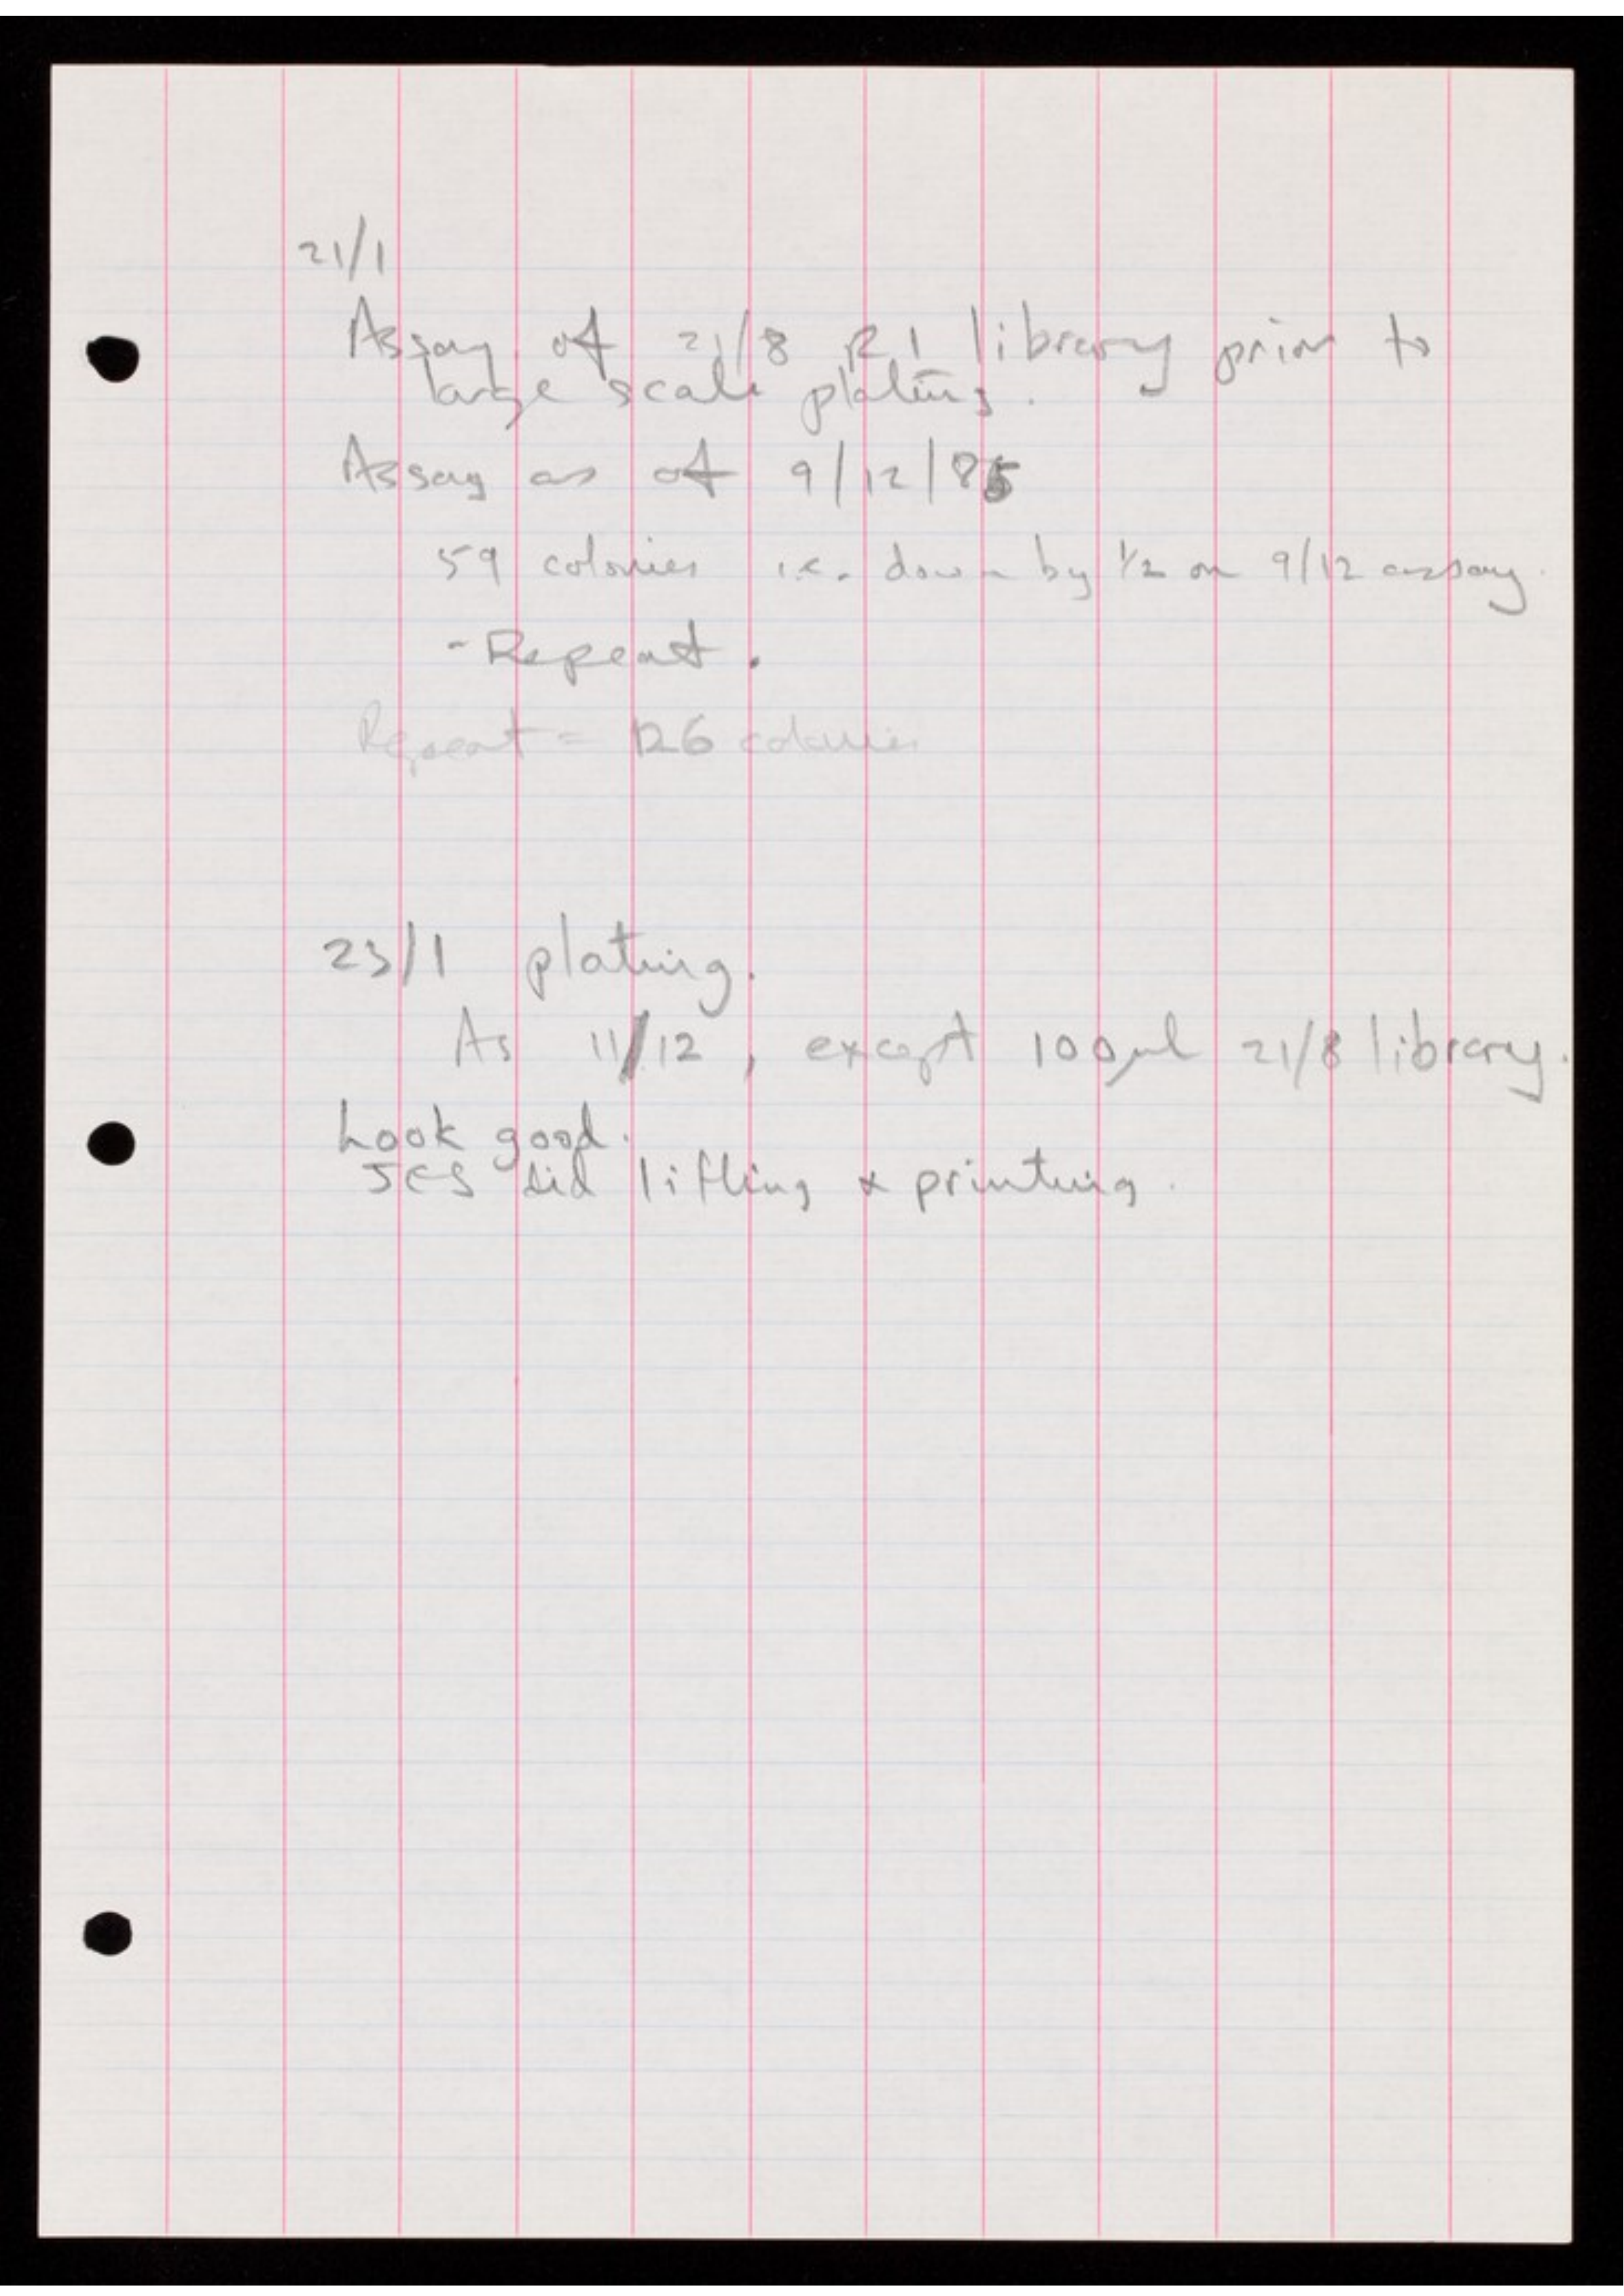 21/1
Assay of 21/8 R1 library prior to
large scale plating.
Assay as of 9/12/85
59 colonies i.e. down by 1/2 on 9/12 assay.
- Repeat.
Repeat = 126 colonies
23/1 plating.
As 11/12, except 100µl 21/8 library.
Look good.
JES did lifting & printing.